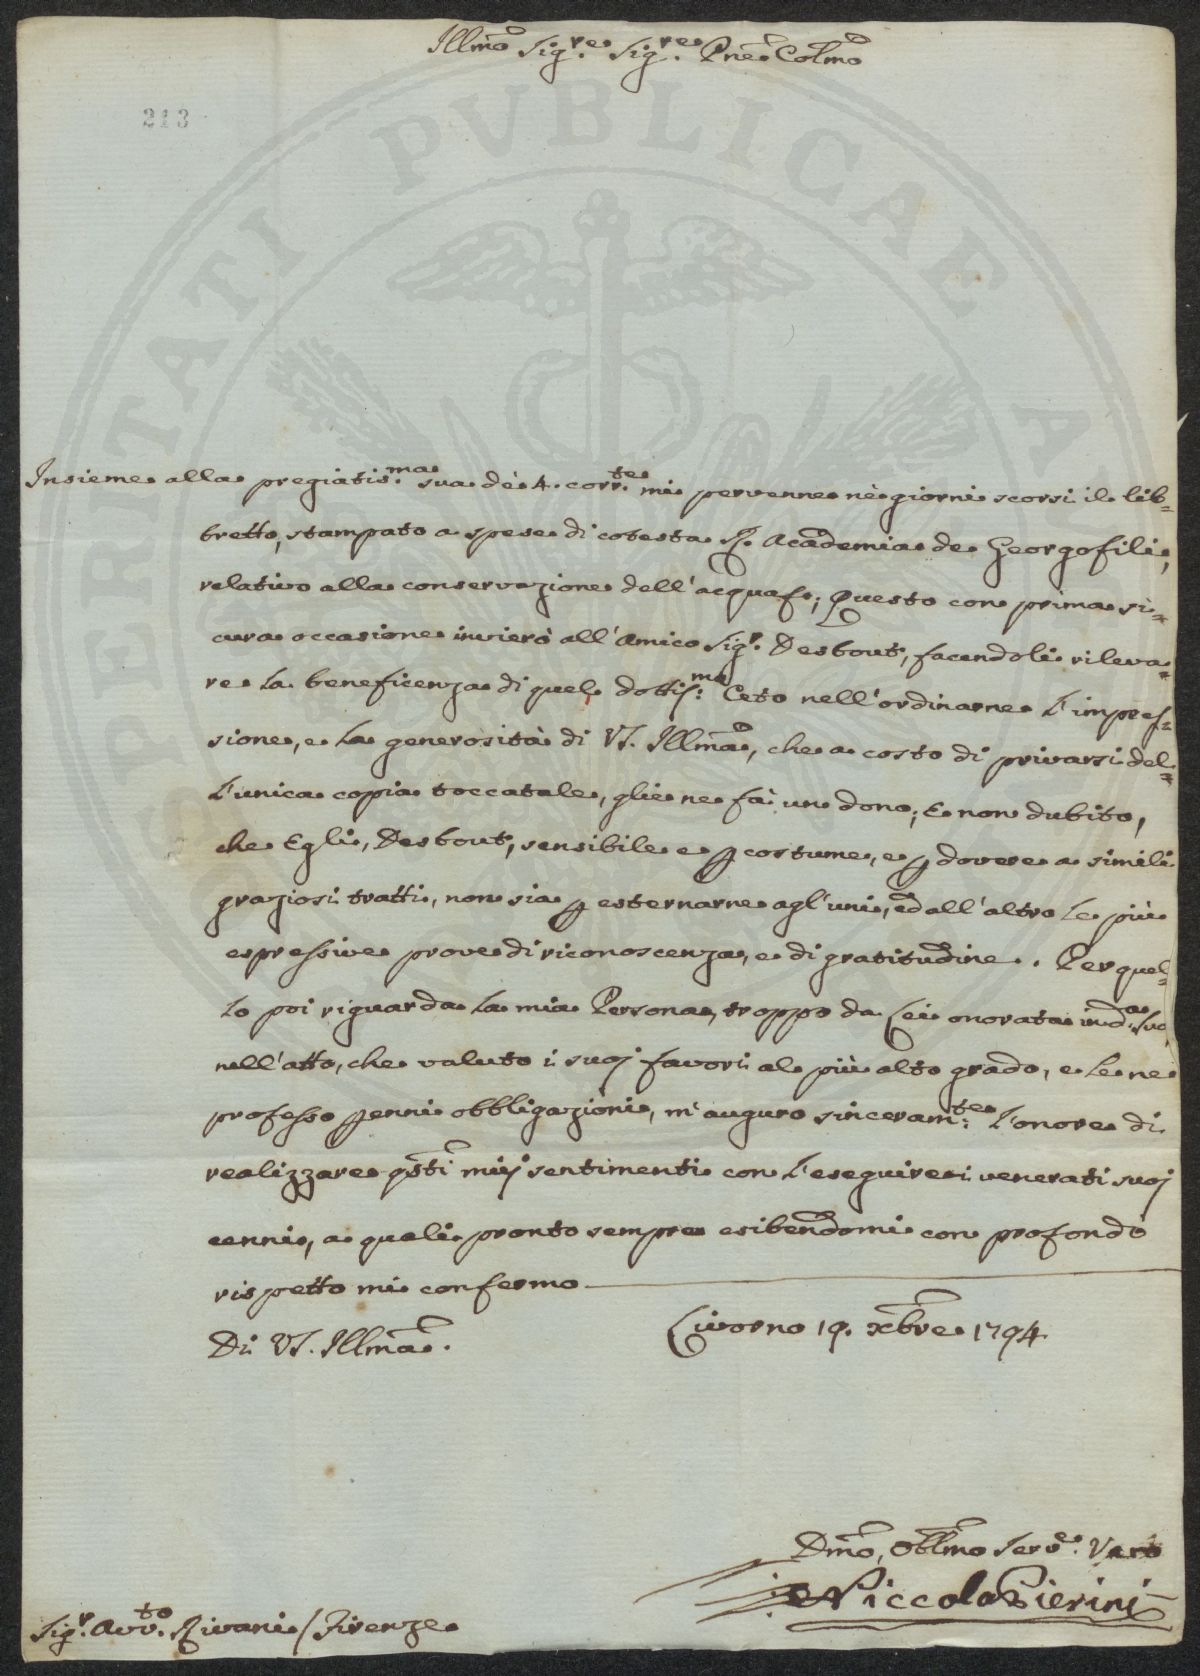 Illmo Sigre. Sigre. Pne Colmo
213
PROSPERITATI PVBLICAE AVGENDAE
Insieme alla pregiatisma. sua dè 4. corrte. mi pervenne nè giorni scorsi il lib=
bretto, stampato a spese di cotesta R. Accademia de Georgofili,
relativo alla conservazione dell'acquaf; Questo con prima si=
cura occasione invierò all'Amico Sigr. Desbout, facendoli rileva=
re la beneficenza di quel dottissma: Ceto nell'ordinarne l'impres=
sione, e la generosità di VS. Illma, che a costo di privarsi del=
l'unica copia toccatale, glie ne fà un dono; E non dubito,
che Egli, Desbout, sensibile e p costume, e p dovere a simili
graziosi tratti, non sia p esternarne agl'uni, ed all'altro le più
espressive prove di riconoscenza, e di gratitudine. Per quel=
lo poi riguarda la mia Persona, troppo da Lei onorata in da. sua,
nell'atto, che valuto i suoj favori al più alto grado, e le ne
professo penni obbligazioni, m'auguro sinceramte: l'onore di
realizzare qsti miej sentimenti con l'eseguire i venerati suoj
cenni, a quali pronto sempre esibendomi con profondo
rispetto mi confermo
Di VS. Illma.
Livorno 19. Xbre 1794
Dmo, Obblmo Servo. Vero
Niccola Pierini
Sigr. Avvto. Rivani / Firenze